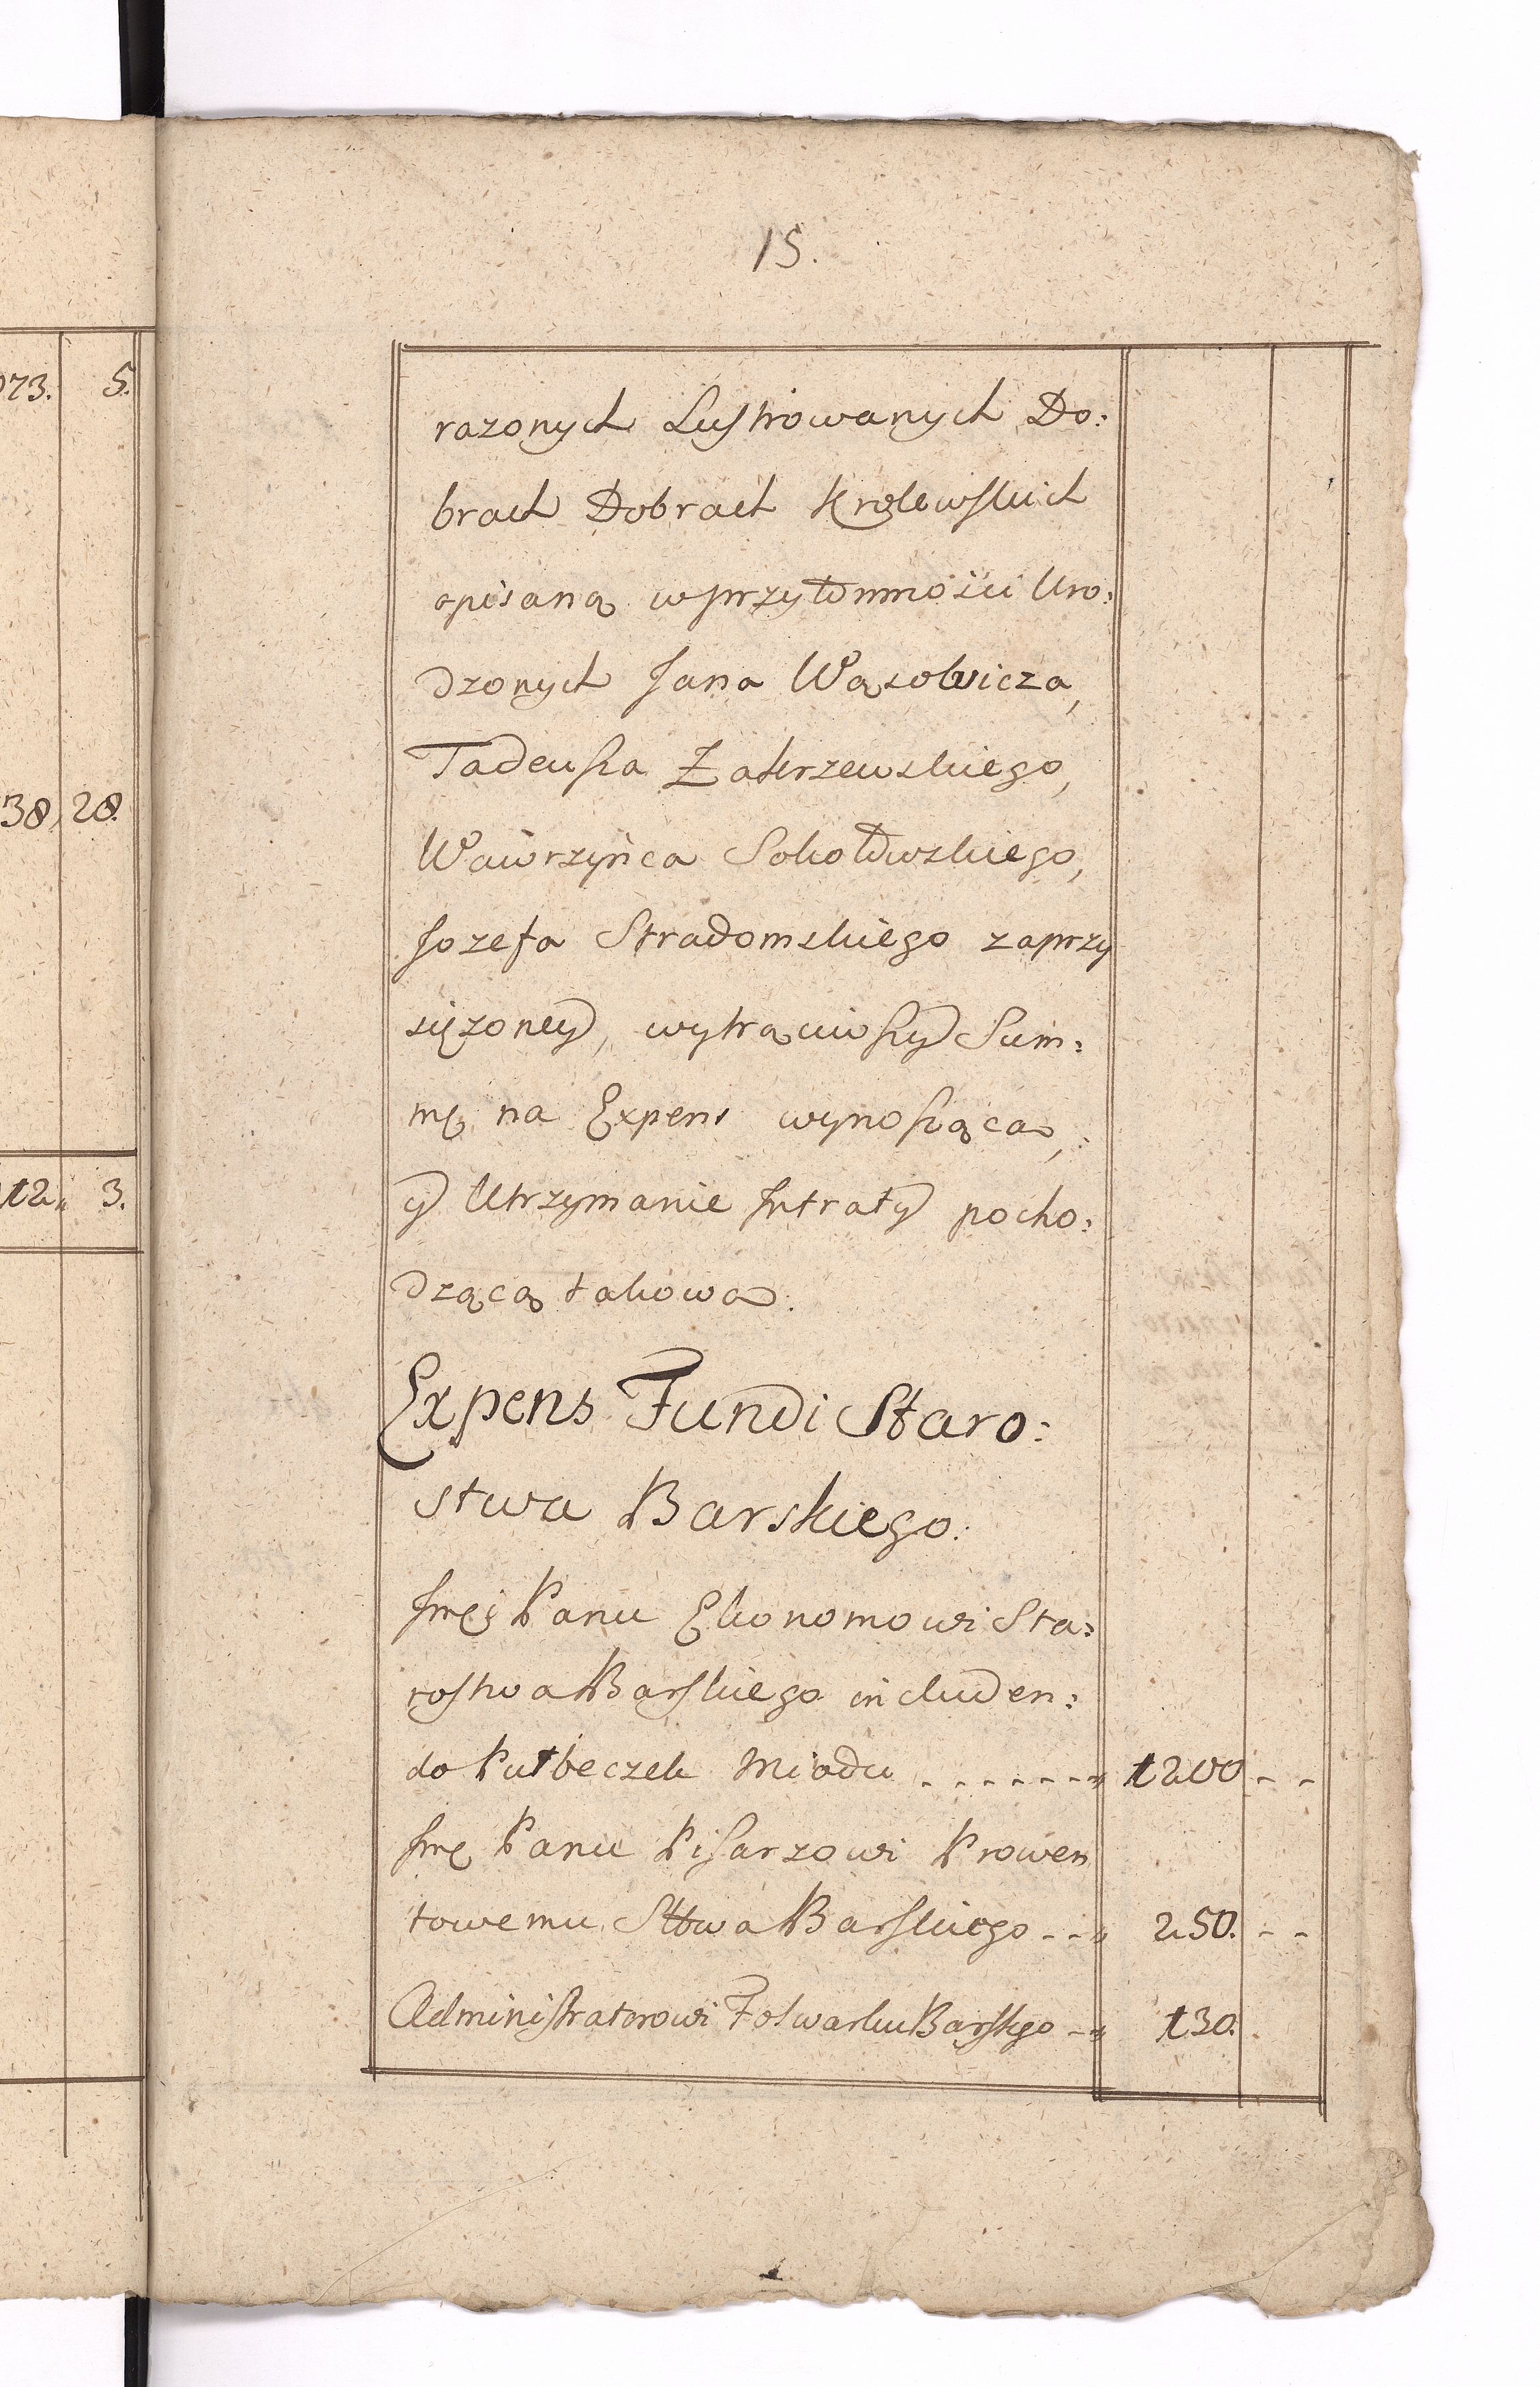 15.
073. 5.
38, 28.
12 " 3.
razonych Lustrowanych Do:
brach Dobrach Krolewskich
opisaną w przytomności Uro:
dzonych Jana Wąsowicza,
Tadeusza Zakrzewskiego,
Wawrzyńca Sokołowskiego,
Jozefa Stradomskiego zaprzy
siężoney, wytrąciwszy Sum:
mę na Expens wynoszącą,
y Utrzymanie Intraty pocho:
dzącą takową.
Expens Fundi Staro:
stwa Barskiego.
Jmci Panu Ekonomowi Sta:
rostwa Barskiego includen:
do Puł beczek Miodu - - - - - - - " 1200 - -
Jmę Panu Pisarzowi Prowen
towemu Sttwa Barskiego - - " 250. - -
Administratorowi Folwarku Barskgo - " 130.